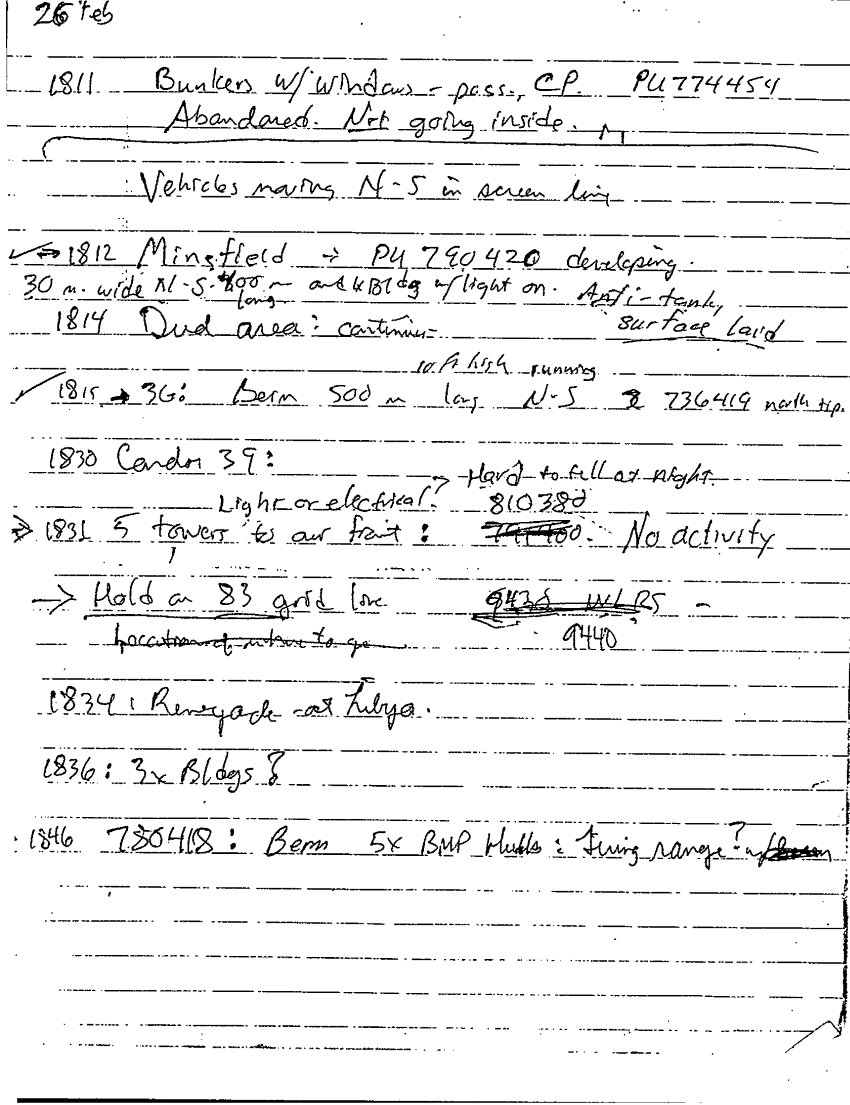 26 Feb
1811 Bunkers w/ windows - poss., CP. PU774454
Abandoned. Not going inside.
Vehicles moving N-S in screen line
1812 Minefield → PU 790420 developing.
30 m. wide N-S. 400 m long and 4 Bldg w/light on. Anti-tank,
surface laid
1814 Dud area: continues
10 ft high running
1815 → 3G: Berm 500 m long N-S 736419 north tip.
1830 Condor 39:
→ Hard to tell at night.
Light or electrical? 810380
1831 5 towers to our front: No activity
→ Hold on 83 grid line
9440
1834: Renegade at Libya.
1836: 3x Bldgs?
1846 780418: Berm 5x BMP Hulls: Firing range?